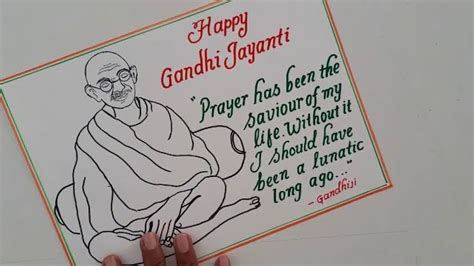 Happy
Gandhi Jayanti
"Prayer has been the
saviour of my
life. Without it
I should have
been a lunatic
long ago..."
- Gandhiji